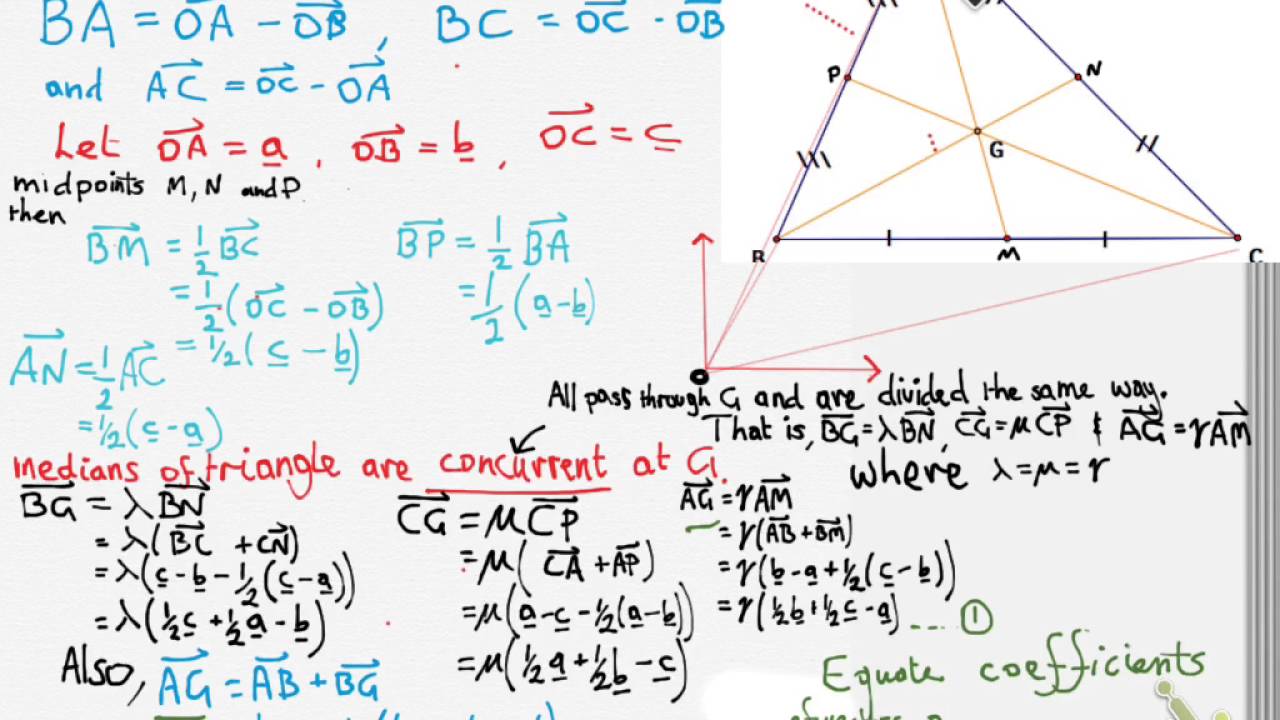 BA = OA - OB, BC = OC - OB
and AC = OC - OA
Let OA = a, OB = b, OC = c
midpoints M, N and P
then
BM = 1/2 BC
= 1/2 (OC - OB)
= 1/2 (c - b)
BP = 1/2 BA
= 1/2 (a - b)
AN = 1/2 AC
= 1/2 (c - a)
P
N
G
B
M
C
O
All pass through G and are divided the same way.
That is, BG = λBN, CG = μCP & AG = γAM
where λ = μ = γ
medians of triangle are concurrent at G.
BG = λBN
= λ(BC + CN)
= λ(c - b - 1/2 (c - a))
= λ(1/2 c + 1/2 a - b)
CG = μCP
= μ(CA + AP)
= μ(a - c - 1/2 (a - b))
= μ(1/2 a + 1/2 b - c)
AG = γAM
= γ(AB + BM)
= γ(b - a + 1/2 (c - b))
= γ(1/2 b + 1/2 c - a) .... ①
Also, AG = AB + BG
Equate coefficients